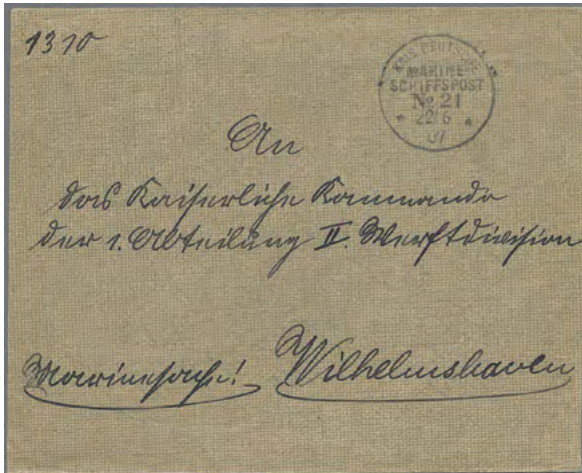 1310
KAIS. DEUTSCHE
MARINE-
SCHIFFSPOST
No 21
22/6
07
An
das Kaiserliche Kommando
der 1. Abteilung II. Werftdivision
Marinesache! Wilhelmshaven